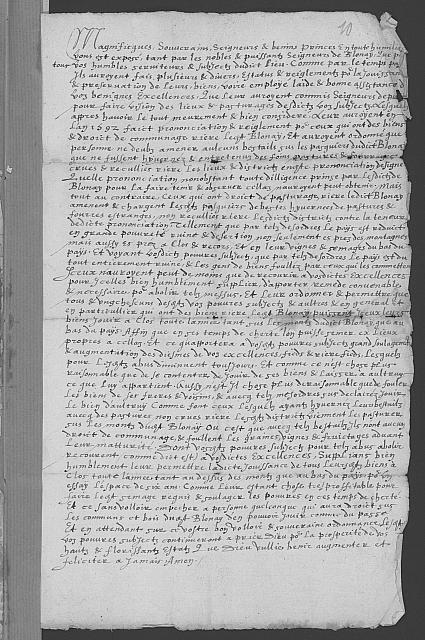 10
Magnificques Souverains Seigneurs & benins Princes En toute humilité
vous est exposé, tant par les nobles & puissants Seigneurs de Blonay Que par
tous vos humbles serviteurs & subjects dudict lieu. Comme par le temps passé
Ils auroyent fais plusieurs & divers Estatus & reiglements po la Jouissance
& preservation de Leurs biens, voire employé laide & bonne assistance de
vos benignes Excellences Que Leur auroyent commis Seigneurs de
pour faire vision des lieux & pasturages desdicts vos subjects Lesquels
appres havoir Le tout meurement & bien consideré Leur auroyent en
Lan 1592 faict prononciation & reiglement po ceux qui ont des biens
& droict de commungage riere Lesdt Blonay, Et auroyent ordonné que
personne ne deubt amener aulcun bestails sur les pasquiers dudict Blonay
que ne fussent hyvernes & entretenus des foins
crues & recullir riere Les lieux & districts en
Quelle prononciation nonobstant toutte dilligence prinse par Lesdicts de
Blonay pour La faire tenir & observer cella nauroyent peut obtenir, Mais
tout au contraire, Ceux qui ont droict de pasturage riere Ledict Blonay
amenent & chargent Lesdts pasquiers de bestes hyvernees de pastures &
fourres estranges, non recullir riere Lesdicts districts contre La teneur
dedicte prononciation Tellement que par telz desordres Le pays est reduict
en grande pouvreté ruine & desertion non seulement es prés de montagnes
mais aussy es prés a Clos & records Et en leur vignes & semages du bas du
pays, Et voyant vosdicts pouvres subjects que par telz desordres Le pays est du
tout entierement ruiné & Les gens de bien foulles par ceux qui les commettent
Ceux nauroyent peut de moins que de recourir a vosdictes Excellences
pour Icelles bien humblement supplier, dapporter remede convenables
& necessaires po abolir telz messus, Et Leur ordonner & permettre que
tous & ungchescun desdts vos pouvres subjects & aultres en general et
en particullier qui ont des biens riere Lesdt Blonay puissent Iceux leurs
biens Jouir a Clos tout Lannee tant sus Les monts dudict Blonay que au
bas du pays Affin que en ces temps de cherté Lon puisse semer es Lieux
propres a cellog Et ce quapportera a vosdts pouvres subjects grand soulagement
& augmentation des diesmes de vos excellences, fieds & riere fieds, Lesquels
pour Lesdts abus diminuent tousjours Et comme ce nest chose plus
raisonnable que de se contenter de Jouir de ses biens & Laisser a aultruy
ce que Luy appartient Aussy nest Il chose plus deraisonable que de fouler
Les biens de ses freres & voisins, & avecq telz mesordres
Le bien daultruy Comme font ceux Lesquels ayants hyvernez Leurs bestails
avecq des pastures non crues riere Lesdts districts viennent Les pasturer
sus Les monts dudt Blonay Ou cest que avecq telz bestails Ilz nont aucuns
droict de commungage, & foullent Les grames, vignes & fructages avant
Leur maturité Dont vosdts pouvres subjects pour telz abus abolir
recourent comme dict est a vosdictes Excellences, Suplians bien
humblement leur permettre ladicte Jouissance de tous Leursdts biens a
Clos toutte Lannee tant au dessus des monts que au bas du pays po ung
essay Lespace de six ans Comme Leur estant chose tres proffitable pour
faire Lesdt semage requis & soulager Les pouvres en ces temps de cherté
Et ce sans volloir empecher a personne quelconque qui aura droict sus
Les communs et bois dudt Blonay den pouvoir Jouir comme du passé
Et en attendant sur ce vostre bon volloir & souveraine ordonnance Lesdts
vos pouvres subjects continueront a prier Dieu po La prosperité de vos
hauts & florissants Estats Que Dieu vullie benir augmenter et
feliciter a Jamais Amen